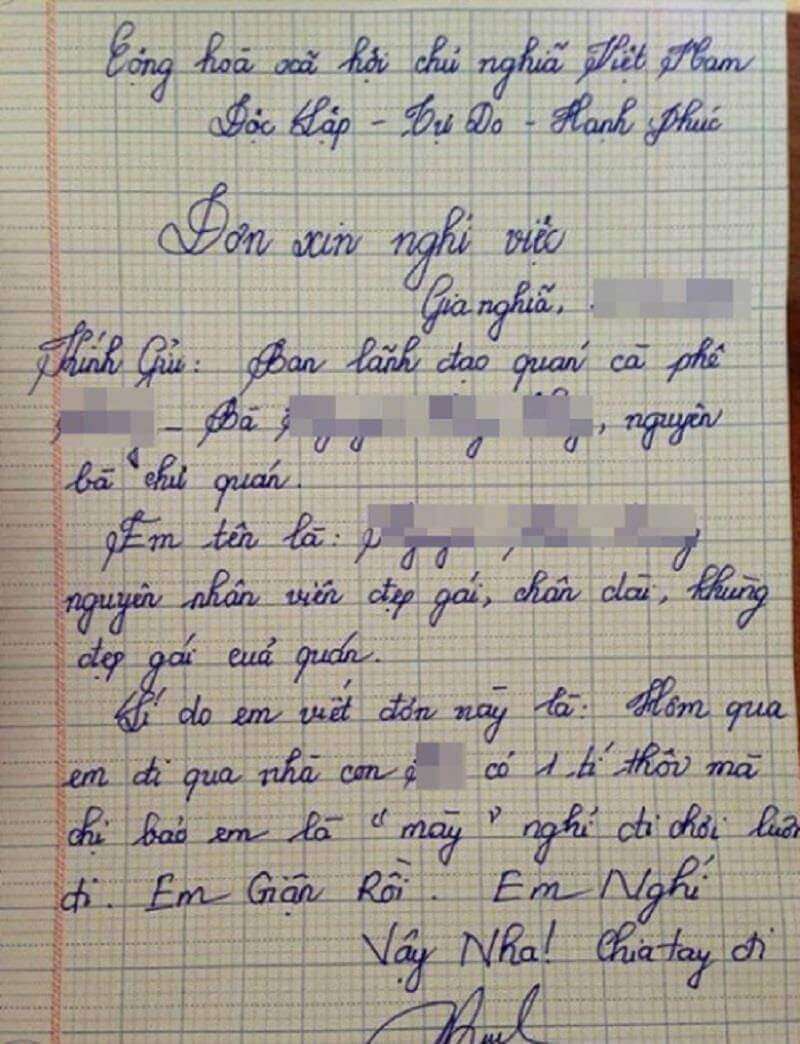 Cộng hoà xã hội chủ nghĩa Việt Nam
Độc Lập - Tự Do - Hạnh Phúc
Đơn xin nghỉ việc
Gia nghĩa,
Kính Gửi: Ban lãnh đạo quán cà phê
- Bà , nguyên
bà "chủ quán.
Em tên là:
nguyên nhân viên đẹp gái, chân dài, khùng
đẹp gái của quán.
Lí do em viết đơn này là: Hôm qua
em đi qua nhà con có 1 tí thôi mà
chị bảo em là "mày" nghỉ đi chơi luôn
đi. Em Giận Rồi. Em Nghỉ
Vậy Nha! Chia tay đi